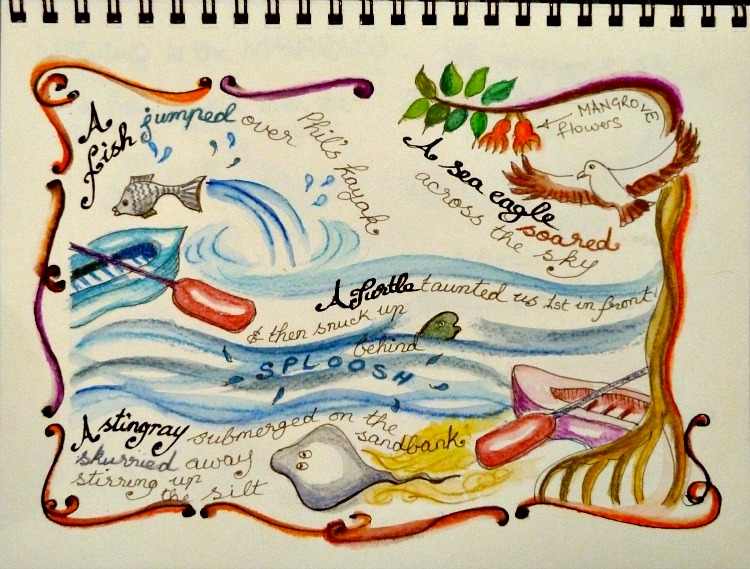 A
fish jumped over Phil's kayak
MANGROVE
flowers
A sea eagle
soared
across the sky
A Turtle taunted us 1st in front
& then snuck up
behind
SPLOOSH
A stingray submerged on the
sandbank
skurried away
stirring up
the silt